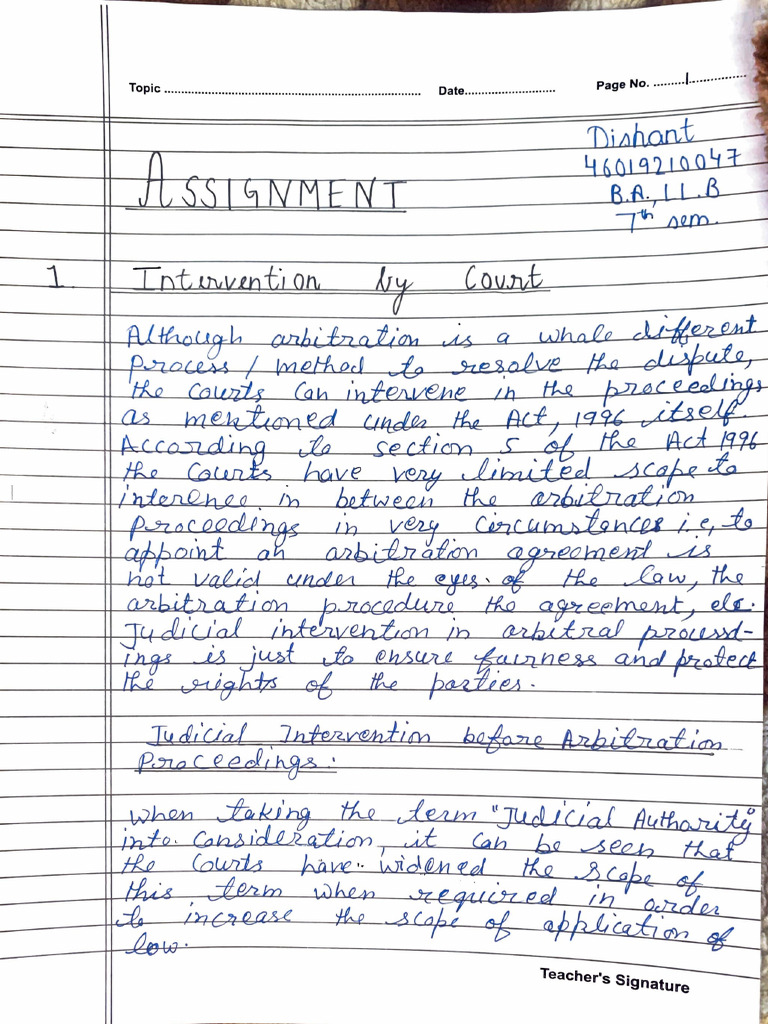 Topic ........................ Date............ Page No. ........1............
Dishant
46019210047
B.A., LL.B
7th sem.
ASSIGNMENT
1. Intervention by Court
Although arbitration is a whole different
Process / method to resolve the dispute,
the courts can intervene in the proceedings
as mentioned under the Act, 1996 itself.
According to section 5 of the Act 1996
the courts have very limited scope to
interence in between the arbitration
Proceedings in very circumstances i.e, to
appoint an arbitration agreement is
not valid under the eyes. of the law, the
arbitration procedure the agreement, etc.
Judicial intervention in arbitral processd-
ings is just to ensure fairness and protect
the rights of the parties.
Judicial Intervention before Arbitration
Proceedings:
When taking the term "Judicial Authority"
into. consideration, it can be seen that
the courts have widened the scope of
this term when required in order
to increase the scope of application of
low.
Teacher's Signature